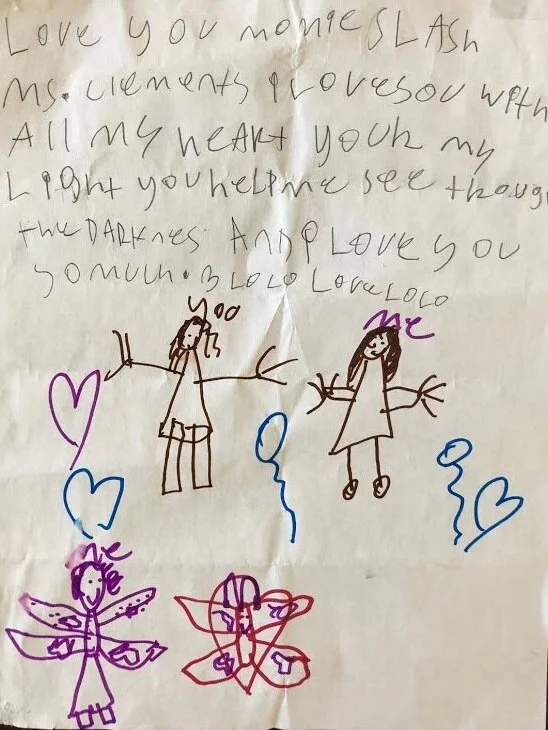 LOVE YOU MOMIE SLASH
Ms. Clements I LOVE YOU WITH
All MY HEART YOUR MY
LIGht you help me see though
the DARKnes. AND I LOVE YOU
SO MUCH. LOLO Love LOLO
YOO
Me
Me